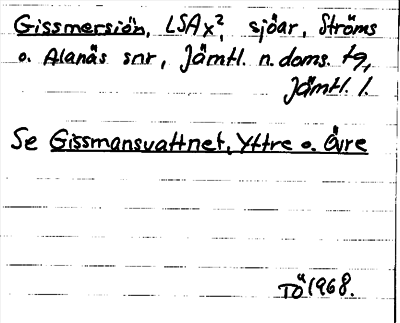 Gissmersiön, LSA x², sjöar, Ströms
o. Alanäs snr, Jämtl. n. doms. tg,
Jämtl. l.
Se Gissmansvattnet, Yttre o. Övre
TÖ 1968.